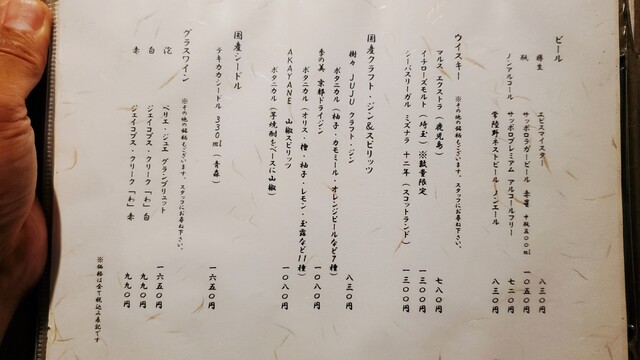 ビール
樽生 エビスマイスター 八三〇円
瓶 サッポロラガービール 赤星 中瓶五〇〇ml 一〇五〇円
ノンアルコール サッポロプレミアム アルコールフリー 七二〇円
常陸野ネストビール ノンエール 八三〇円
ウイスキー ※その他の銘柄もございます。スタッフにお尋ね下さい。
マルス エクストラ (鹿児島) 七八〇円
イチローズモルト (埼玉) ※数量限定 一三〇〇円
シーバスリーガル ミズナラ 十二年 (スコットランド) 一三〇〇円
国産クラフト・ジン&スピリッツ
樹々 JUJU クラフト・ジン 八三〇円
ボタニカル (柚子・カモミール・オレンジピールなど7種)
季の美 京都ドライジン 一〇八〇円
ボタニカル (オリス・檜・柚子・レモン・玉露など11種)
AKAYANE 山椒スピリッツ 一〇八〇円
ボタニカル (芋焼酎をベースに山椒)
国産シードル
テキカカシードル 330ml (青森) 一六五〇円
グラスワイン ※その他の銘柄もございます。スタッフにお尋ね下さい。
泡 ペリエ・ジュエ グランブリュット 一六五〇円
白 ジェイコブス・クリーク「わ」白 九九〇円
赤 ジェイコブス・クリーク「わ」赤 九九〇円
※価格は全て税込み表記です